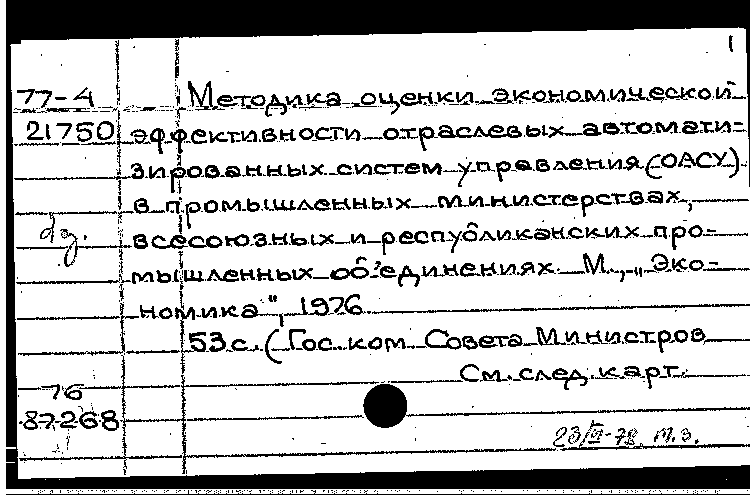 1
77-4 Методика оценки экономической
21750 эффективности отраслевых автомати-
зированных систем управления (ОАСУ)
в промышленных министерствах,
всесоюзных и республиканских про-
мышленных об'единениях. М., „Эко-
номика", 1976.
53 с. (Гос. ком. Совета Министров
См. след. карт.
76
87268
23/VI-78 М.З.